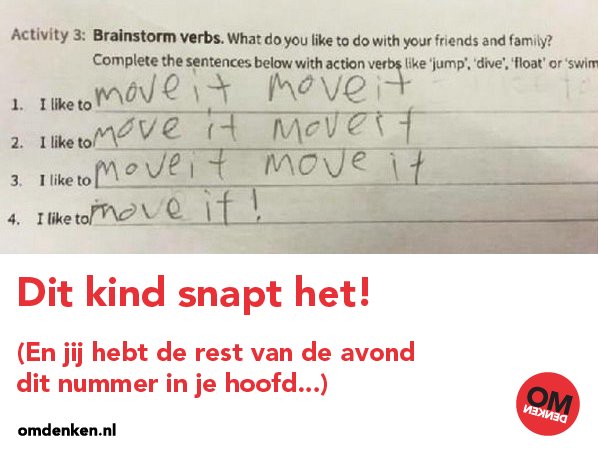 Activity 3: Brainstorm verbs. What do you like to do with your friends and family?
Complete the sentences below with action verbs like 'jump', 'dive', 'float' or 'swim
1. I like to move it move it
2. I like to move it move it
3. I like to move it move it
4. I like to move it!
Dit kind snapt het!
(En jij hebt de rest van de avond
dit nummer in je hoofd...)
omdenken.nl
OM
DENKEN